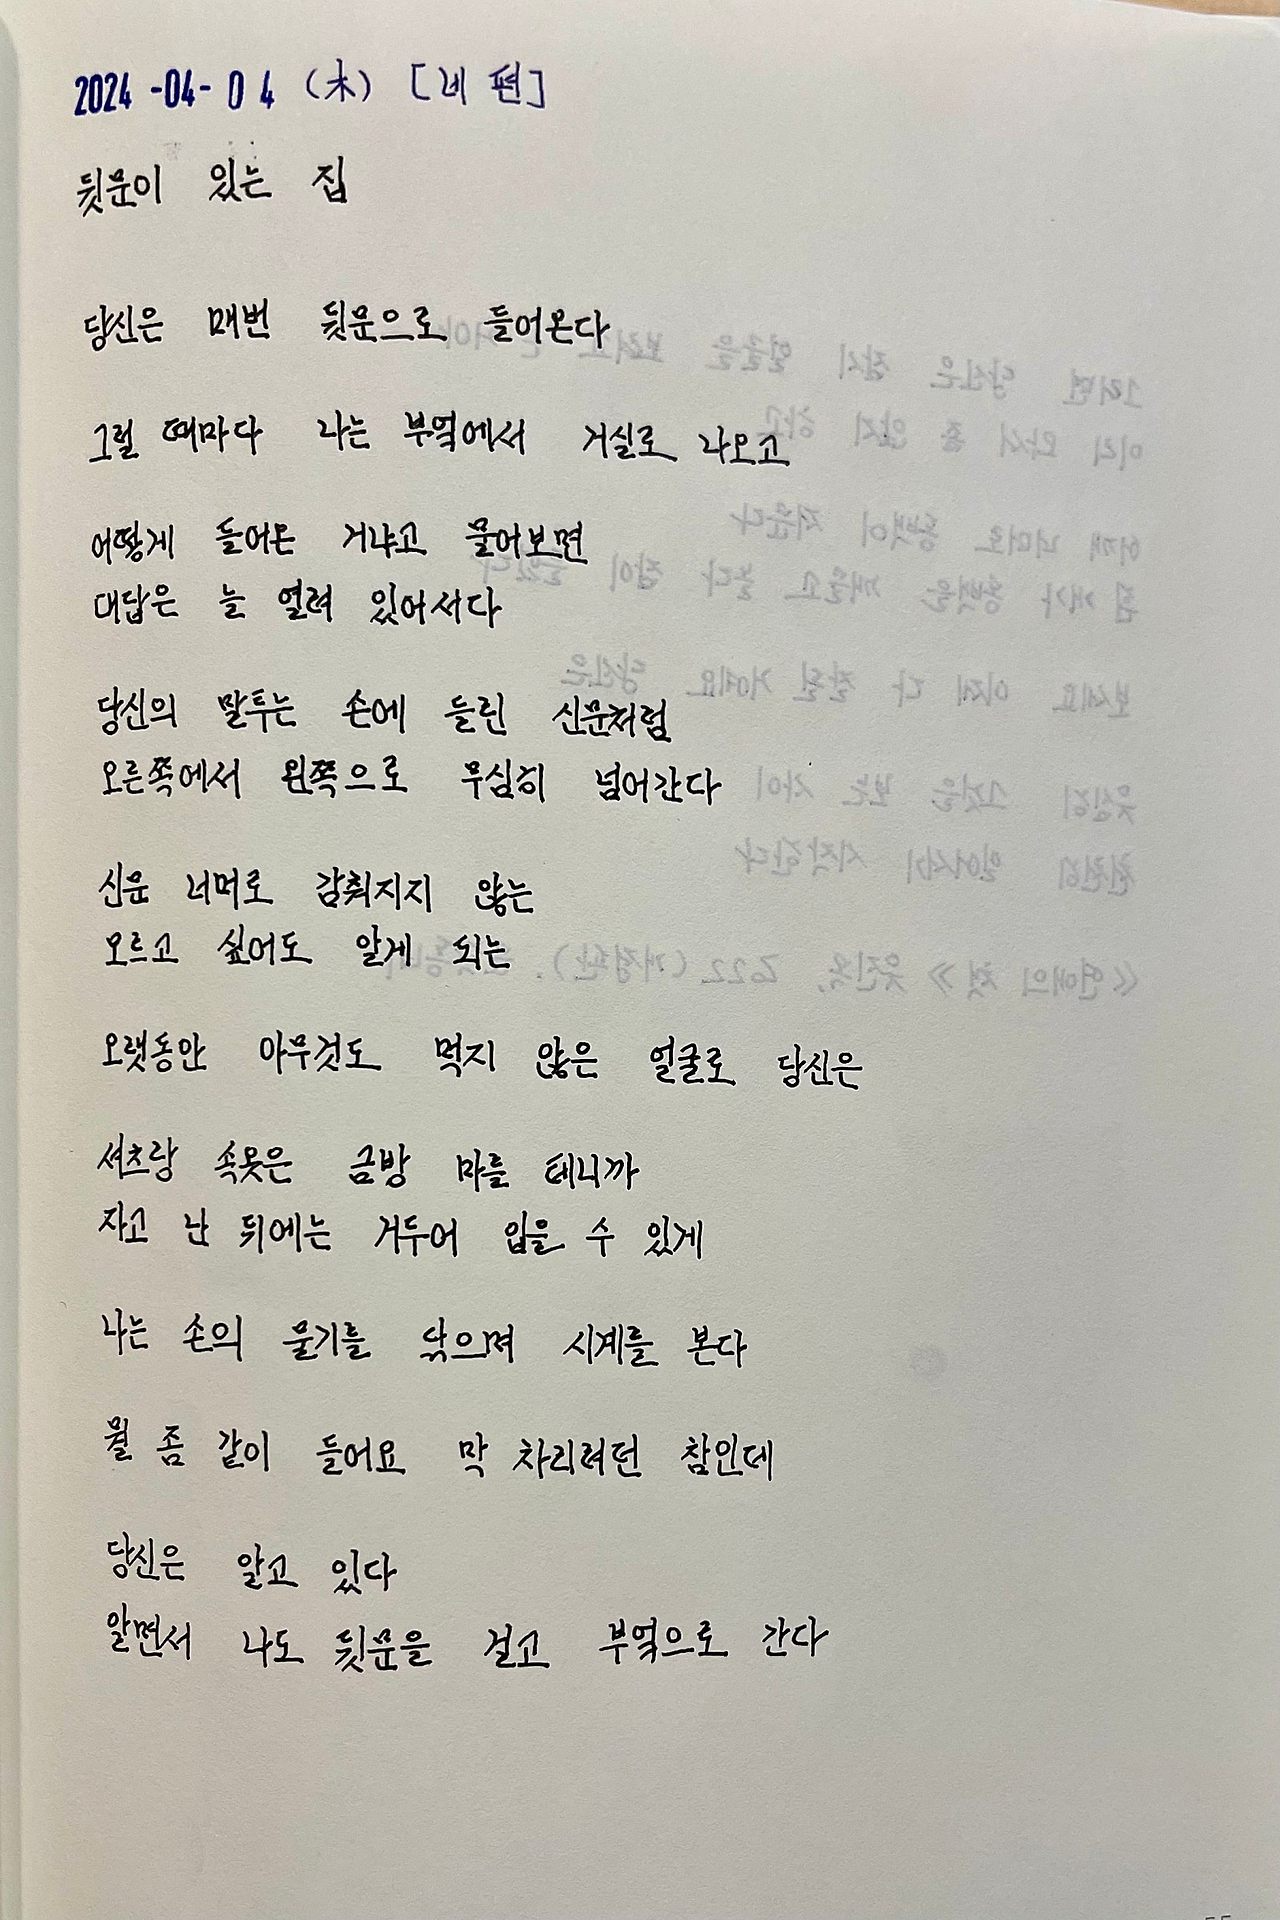 2024-04-04 (木) [네 편]
뒷문이 있는 집
당신은 매번 뒷문으로 들어온다
그럴 때마다 나는 부엌에서 거실로 나오고
어떻게 들어온 거냐고 물어보면
대답은 늘 열려 있어서다
당신의 말투는 손에 들린 신문처럼
오른쪽에서 왼쪽으로 무심히 넘어간다
신문 너머로 감춰지지 않는
모르고 싶어도 알게 되는
오랫동안 아무것도 먹지 않은 얼굴로 당신은
셔츠랑 속옷은 금방 마를 테니까
자고 난 뒤에는 거두어 입을 수 있게
나는 손의 물기를 닦으며 시계를 본다
뭘 좀 같이 들어요 막 차리려던 참인데
당신은 알고 있다
알면서 나도 뒷문을 걸고 부엌으로 간다